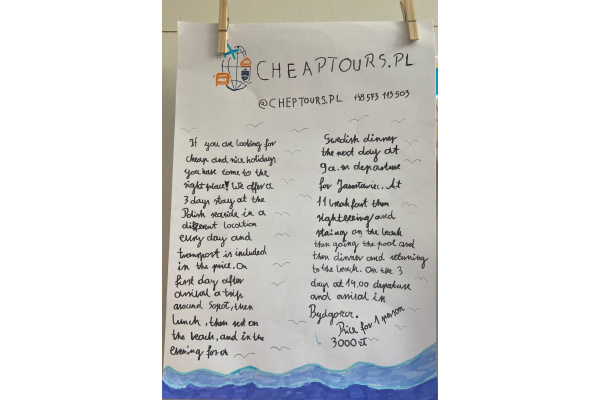 CHEAPTOURS.PL
@CHEPTOURS.PL +48 573 113 503
If you are looking for
cheap and nice holidays
you have come to the
right place! We offer a
3 days stay at the
Polish seaside in a
different location
every day and
transport is included
in the price. On
first day after
arrival a trip
around Sopot, then
lunch, then rest on
the beach, and in the
evening for a
Swedish dinner
the next day at
9 a.m departure
for Jastarnia. At
11 breakfast then
sightseeing and
staing on the beach
then going the pool and
then dinner and returning
to the beach. On the 3
days at 14.00 depature
and arrival in
Bydgoszcz.
Price for 1 person
3000 zł